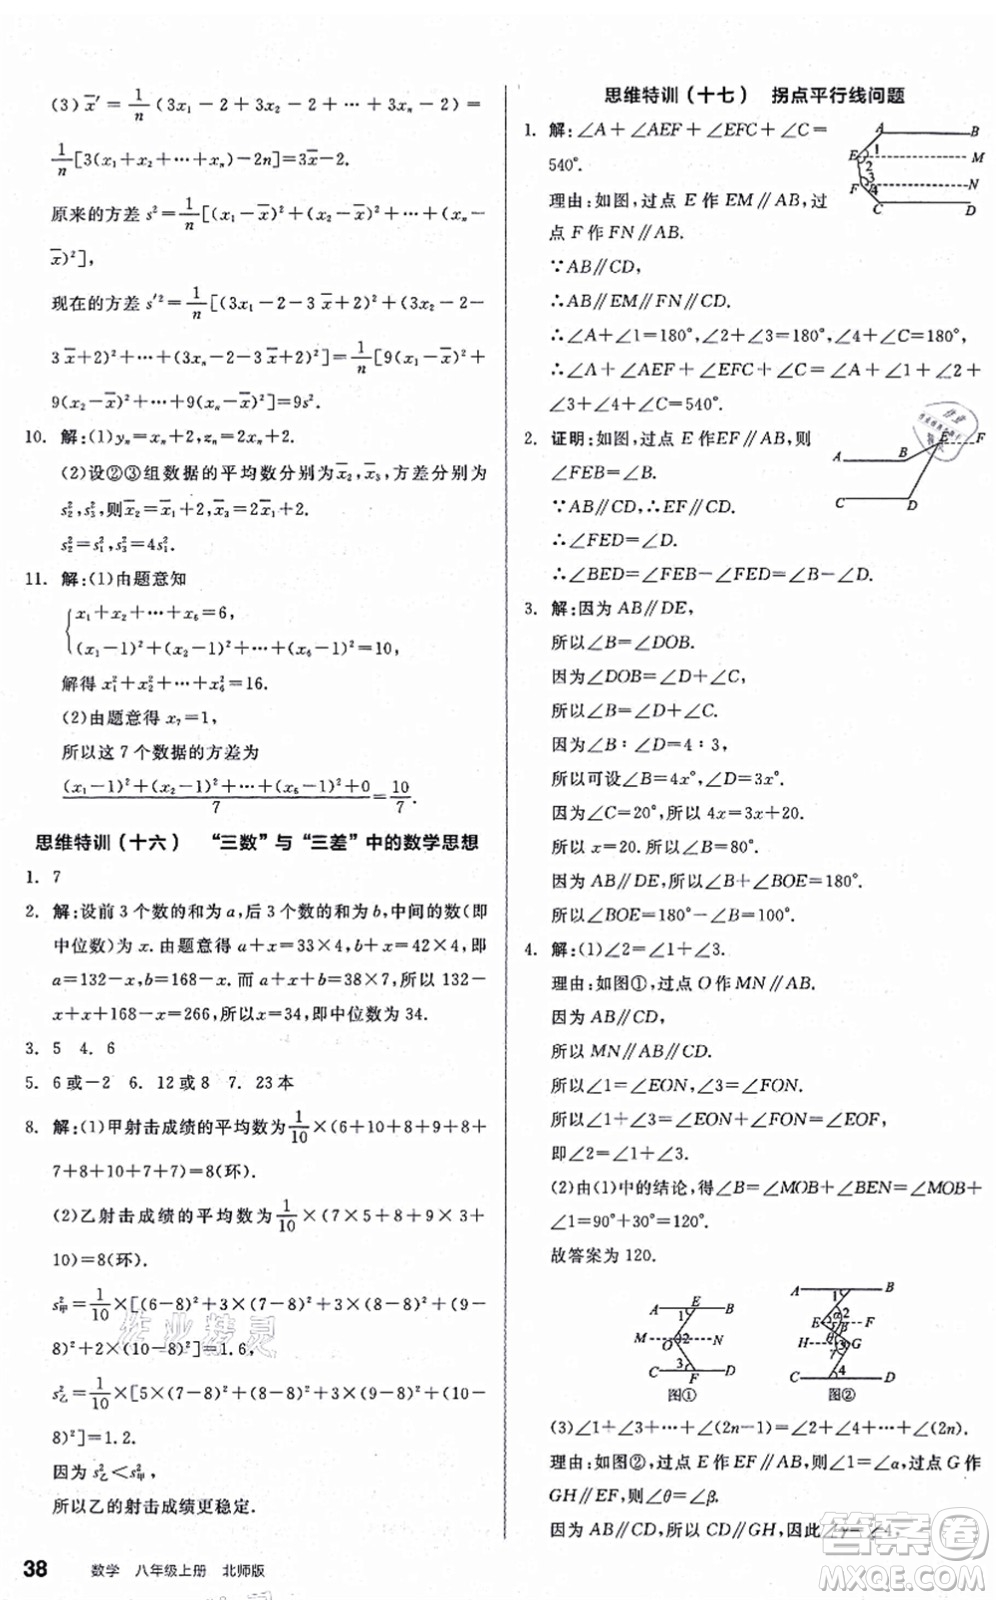 (3) x̄′=1/n(3x₁-2+3x₂-2+…+3xₙ-2)=
1/n[3(x₁+x₂+…+xₙ)-2n]=3x̄-2.
原来的方差 s²=1/n[(x₁-x̄)²+(x₂-x̄)²+…+(xₙ-
x̄)²],
现在的方差 s′²=1/n[(3x₁-2-3x̄+2)²+(3x₂-2-
3x̄+2)²+…+(3xₙ-2-3x̄+2)²]=1/n[9(x₁-x̄)²+
9(x₂-x̄)²+…+9(xₙ-x̄)²]=9s².
10. 解:(1)yₙ=xₙ+2,zₙ=2xₙ+2.
(2)设②③组数据的平均数分别为x̄₂,x̄₃,方差分别为
s₂²,s₃²,则x̄₂=x̄₁+2,x̄₃=2x̄₁+2.
s₂²=s₁²,s₃²=4s₁².
11. 解:(1)由题意知
{x₁+x₂+…+x₆=6,
(x₁-1)²+(x₂-1)²+…+(x₆-1)²=10,
解得 x₁²+x₂²+…+x₆²=16.
(2)由题意得 x₇=1,
所以这 7 个数据的方差为
[(x₁-1)²+(x₂-1)²+…+(x₆-1)²+0]/7=10/7.
思维特训(十六) “三数”与“三差”中的数学思想
1. 7
2. 解:设前 3 个数的和为 a,后 3 个数的和为 b,中间的数(即
中位数)为 x. 由题意得 a+x=33×4,b+x=42×4,即
a=132-x,b=168-x. 而 a+x+b=38×7,所以 132-
x+x+168-x=266,所以 x=34,即中位数为 34.
3. 5 4. 6
5. 6或-2 6. 12或8 7. 23本
8. 解:(1)甲射击成绩的平均数为1/10×(6+10+8+9+8+
7+8+10+7+7)=8(环).
(2)乙射击成绩的平均数为1/10×(7×5+8+9×3+
10)=8(环).
s甲²=1/10×[(6-8)²+3×(7-8)²+3×(8-8)²+(9-
8)²+2×(10-8)²]=1.6,
s乙²=1/10×[5×(7-8)²+(8-8)²+3×(9-8)²+(10-
8)²]=1.2.
因为 s乙²<s甲²,
所以乙的射击成绩更稳定.
38 数学 八年级上册 北师版
思维特训(十七) 拐点平行线问题
1. 解:∠A+∠AEF+∠EFC+∠C=
540°.
理由:如图,过点 E 作 EM∥AB,过
点 F 作 FN∥AB.
∵AB∥CD,
∴AB∥EM∥FN∥CD.
∴∠A+∠1=180°,∠2+∠3=180°,∠4+∠C=180°,
∴∠A+∠AEF+∠EFC+∠C=∠A+∠1+∠2+
∠3+∠4+∠C=540°.
A B E 1 2 M F 3 4 N C D
2. 证明:如图,过点 E 作EF∥AB,则
∠FEB=∠B.
∵AB∥CD,∴EF∥CD.
∴∠FED=∠D.
∴∠BED=∠FEB-∠FED=∠B-∠D.
E F A B C D
3. 解:因为 AB∥DE,
所以∠B=∠DOB.
因为∠DOB=∠D+∠C,
所以∠B=∠D+∠C.
因为∠B∶∠D=4∶3,
所以可设∠B=4x°,∠D=3x°.
因为∠C=20°,所以 4x=3x+20.
所以 x=20. 所以∠B=80°.
因为 AB∥DE,所以∠B+∠BOE=180°.
所以∠BOE=180°-∠B=100°.
4. 解:(1)∠2=∠1+∠3.
理由:如图①,过点 O 作 MN∥AB.
因为 AB∥CD,
所以 MN∥AB∥CD.
所以∠1=∠EON,∠3=∠FON.
所以∠1+∠3=∠EON+∠FON=∠EOF,
即∠2=∠1+∠3.
(2)由(1)中的结论,得∠B=∠MOB+∠BEN=∠MOB+
∠1=90°+30°=120°.
故答案为 120.
A E B 1 M O 2 N 3 C F D
图①
A B 1 E 2 θ F β H 3 G γ 4 C D
图②
(3)∠1+∠3+…+∠(2n-1)=∠2+∠4+…+∠(2n).
理由:如图②,过点 E 作 EF∥AB,过点 G 作
GH∥EF,则∠θ=∠β.
因为 AB∥CD,所以 CD∥GH,因此∠γ=∠4,
作业精灵
答案卷